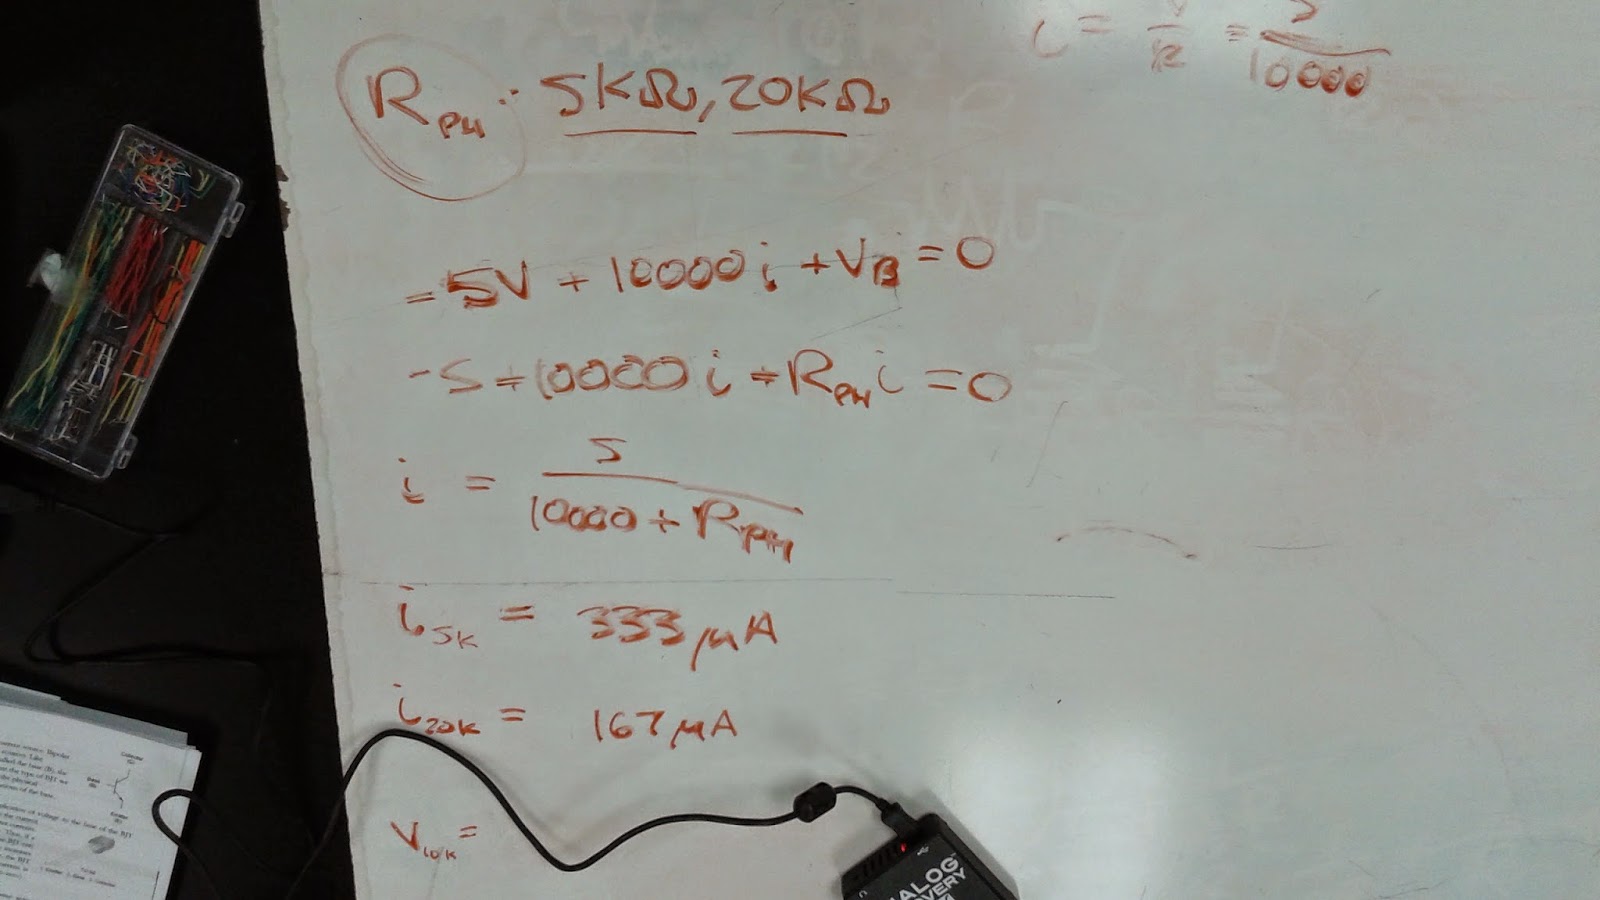 i = V/R = 5/10000
R_PH : 5KΩ, 20KΩ
-5V + 10000i + V_B = 0
-5 + 10000i + R_PH i = 0
i = 5/(10000 + R_PH)
i_5K = 333μA
i_20K = 167μA
V_10K =
ANALOG